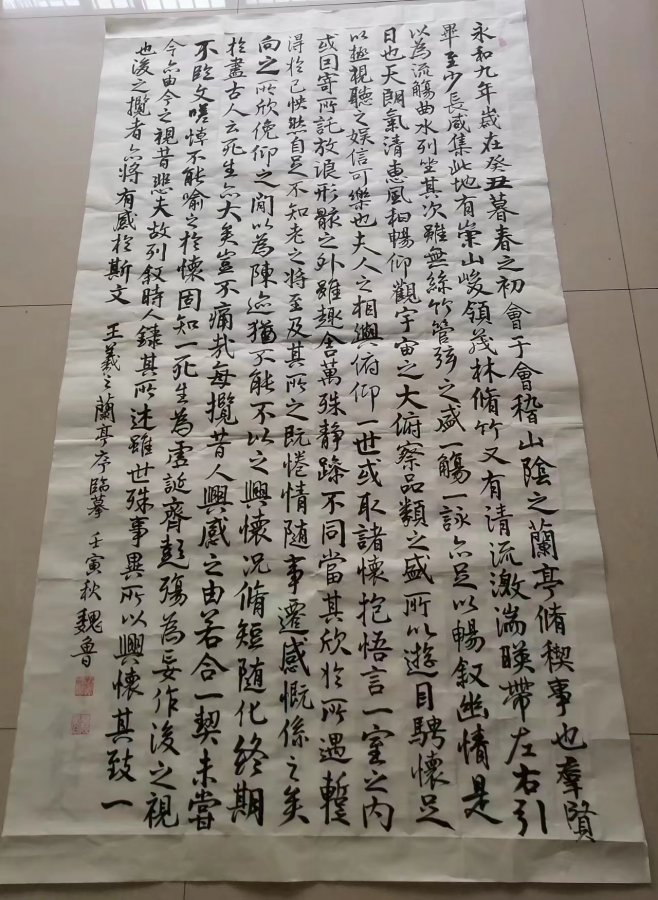 永和九年歲在癸丑暮春之初會于會稽山陰之蘭亭脩稧事也羣賢
畢至少長咸集此地有崇山峻領茂林脩竹又有清流激湍暎帶左右引
以為流觴曲水列坐其次雖無絲竹管弦之盛一觴一詠亦足以暢敘幽情是
日也天朗氣清惠風和暢仰觀宇宙之大俯察品類之盛所以遊目騁懷足
以極視聽之娛信可樂也夫人之相與俯仰一世或取諸懷抱悟言一室之内
或因寄所託放浪形骸之外雖趣舎萬殊静躁不同當其欣於所遇蹔
得於己怏然自足不知老之將至及其所之既惓情随事遷感慨係之矣
向之所欣俛仰之閒以為陳迹猶不能不以之興懷况脩短随化終期
於盡古人云死生亦大矣豈不痛哉每攬昔人興感之由若合一契未嘗
不臨文嗟悼不能喻之於懷固知一死生為虛誕齊彭殤為妄作後之視
今亦由今之視昔悲夫故列敘時人錄其所述雖世殊事異所以興懷其致一
也後之攬者亦將有感於斯文 王羲之蘭亭序臨摹 壬寅秋 魏魯